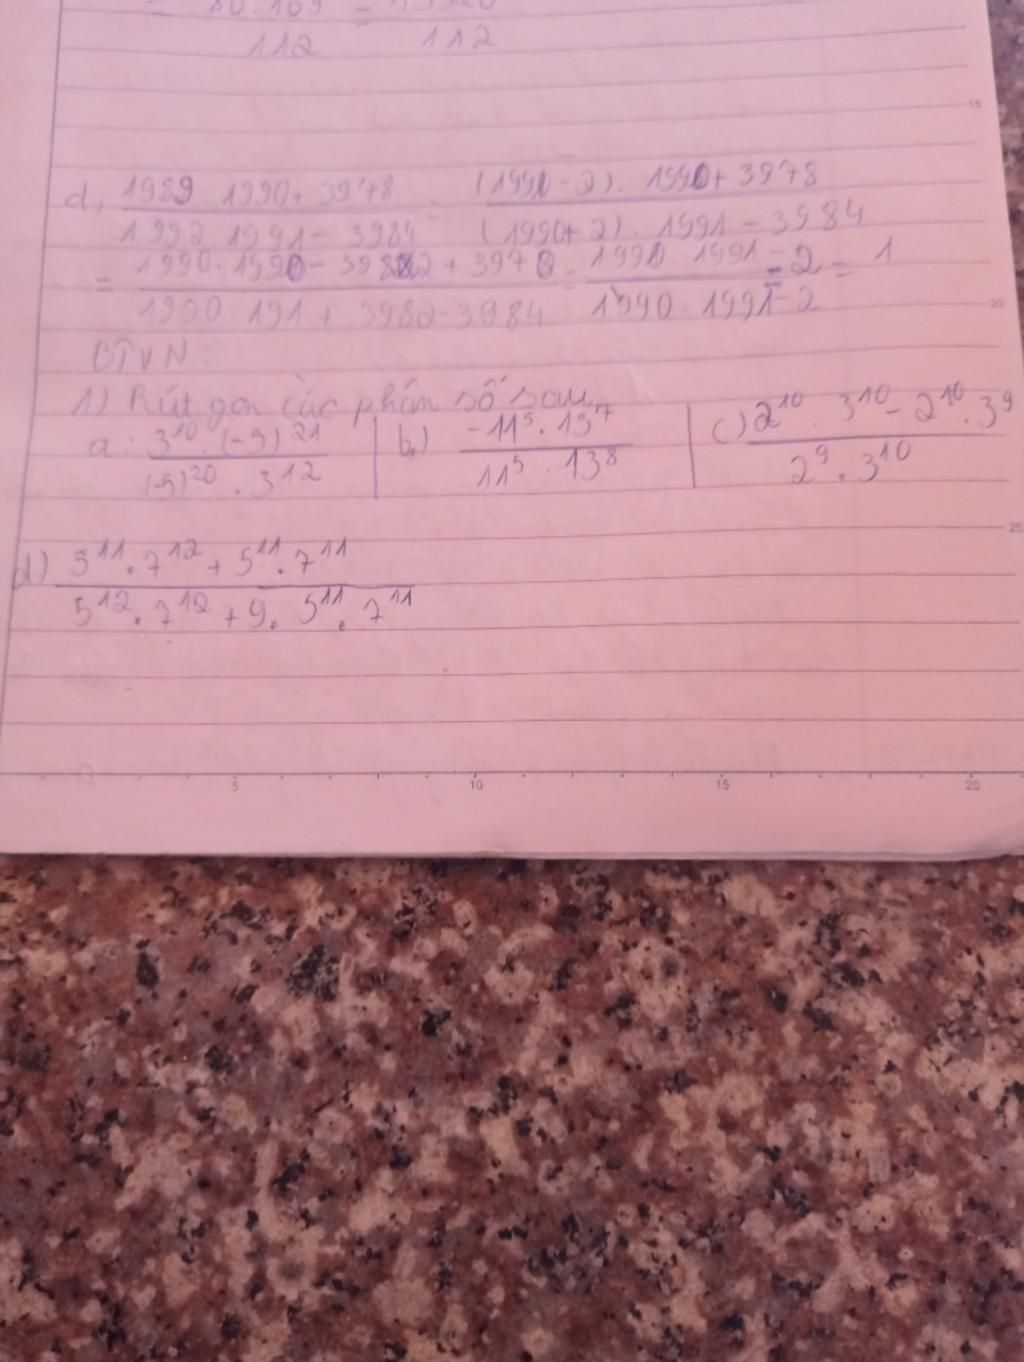 80.169 =
112 112
d, 1989 1990 + 3978 = (1991 - 2). 1990 + 3978
1992.1991 - 3984 (1990 + 2). 1991 - 3984
= 1990.1990 - 3982 + 3978 = 1990 1991 - 2 = 1
1990 191 + 3982 - 3984 1990 1991 - 2
BTVN:
1) Rút gọn các phân số sau
a: 3^10.(-5)^21 b) -11^5.13^7 c) 2^10.3^10 - 2^10.3^9
(-5)^20.3^12 11^5.13^8 2^9.3^10
d) 5^11.7^12 + 5^11.7^11
5^12.7^12 + 9.5^11.7^11
15
20
25
5 10 15 20